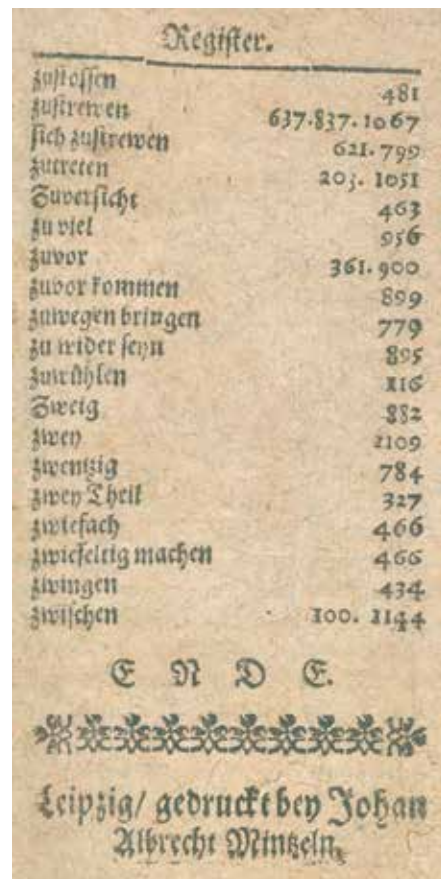 Register.
zustossen 481
zustrewen 637.837.1067
sich zustrewen 621.799
zutreten 203. 1051
Zuversicht 463
zu viel 956
zuvor 361.900
zuvor kommen 899
zuwegen bringen 779
zu wider seyn 895
zuwühlen 116
Zweig 882
zwey 1109
zwentzig 784
zwey Theil 327
zwiefach 466
zwiefeltig machen 466
zwingen 434
zwischen 100. 1144
E N D E.
Leipzig/ gedruckt bey Johan
Albrecht Mintzeln.